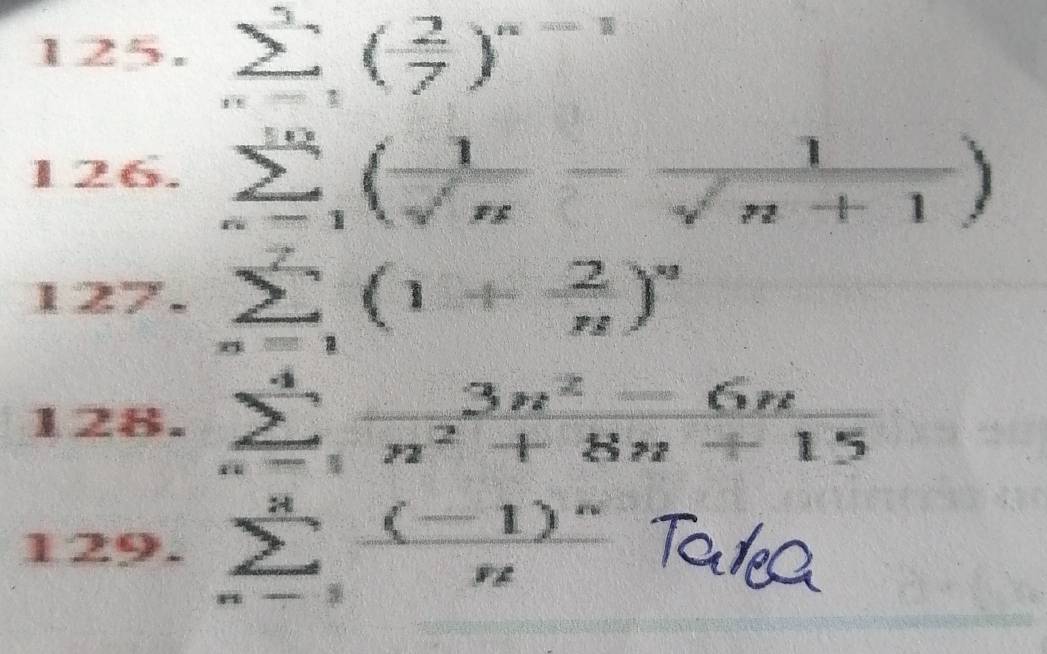 125. ∑_{n = 1}^{3} (2/7)^{n - 1}
126. ∑_{n = 1}^{10} (1/√n - 1/√(n + 1))
127. ∑_{n = 1} (1 + 2/n)^n
128. ∑_{n = 1}^{4} (3n² - 6n)/(n² + 8n + 15)
129. ∑_{n = 1}^{8} (-1)^n/n Tarea